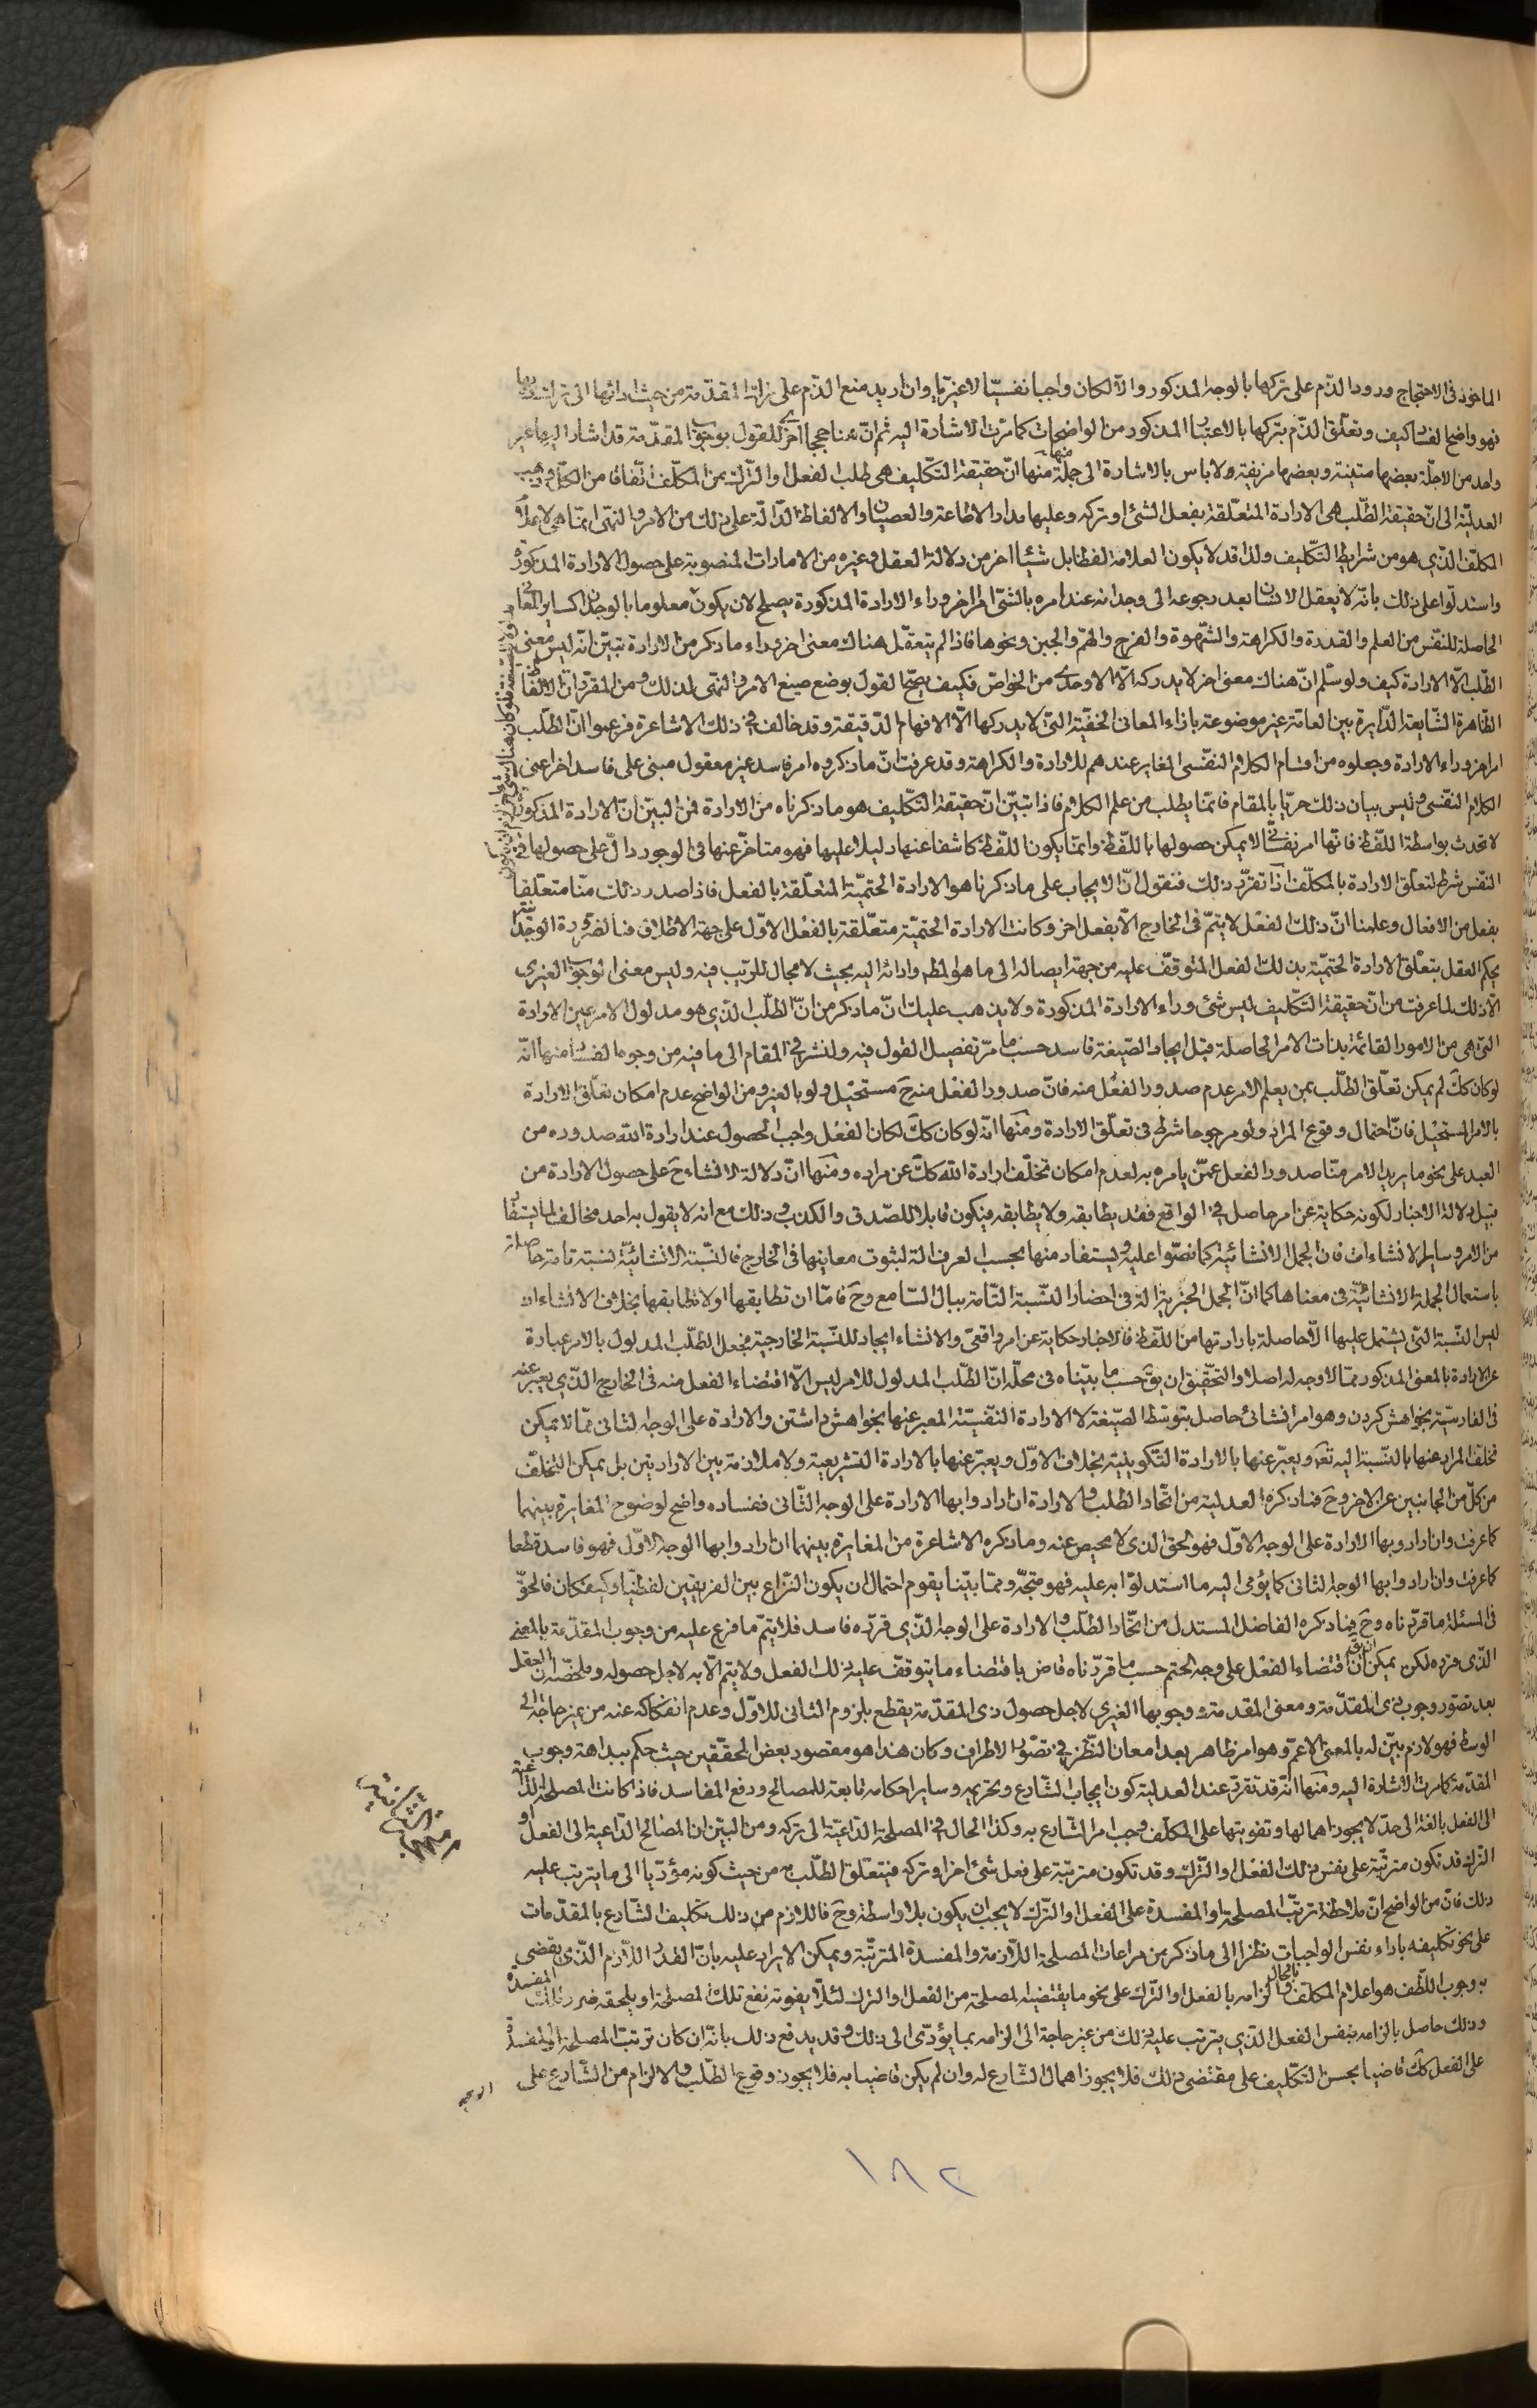 الماخوذ فى الاحتجاج ورود الذم على تركها بالوجه المذكور والا لكان واجبا نفسيا لا غيريا وان اريد منع الذم على ترك المقدمة من حيث ادائها الى ترك ذيها
فهو واضح الفساد كيف وتعلق الذم بتركها بالاعتبار المذكور من الواضحات كما مرت الاشارة اليه ثم ان هنا حججا اخرى للقول بوجوب المقدمة قد اشار اليها غير
واحد من الاجلة بعضها متينة وبعضها مزيفة ولا باس بالاشارة الى جملة منها منها ان حقيقة التكليف هى طلب الفعل او الترك من المكلف اتفاقا من الكل وذهب
العدلية الى ان حقيقة الطلب هى الارادة المتعلقة بفعل الشئ او تركه وعليها مدار الاطاعة والعصيان والالفاظ الدالة على ذلك من الامر والنهى انما هى لاعلام
المكلف الذى هو من شرايط التكليف ولذا قد لا يكون العلامة لفظا بل شيئا اخر من دلالة العقل وغيره من الامارات المنصوبة على حصول الارادة المذكورة
واستدلوا على ذلك بانه لا يعقل الانسان بعد رجوعه الى وجدانه عند امره بالشئ امرا اخر وراء الارادة المذكورة يصلح لان يكون معلوما بالوجدان كساير المعانى
الحاصلة للنفس من العلم والقدرة والكراهة والشهوة والفرح والهم والجبن ونحوها فاذا لم يتعقل هناك معنى اخر وراء ما ذكر من الارادة تبين انه ليس معنى
الطلب الا الارادة كيف ولو سلم ان هناك معنى اخر لا يدركه الا الاوحدى من الخواص فكيف يصح القول بوضع صيغ الامر والنهى لذلك ومن المقرر ان الالفاظ
الظاهرة الشايعة الدايرة بين العامة غير موضوعة بازاء المعانى الخفية التى لا يدركها الا الافهام الدقيقة وقد خالف فى ذلك الاشاعرة فزعموا ان الطلب
امر اخر وراء الارادة وجعلوه من اقسام الكلام النفسى المغاير عندهم للارادة والكراهة وقد عرفت ان ما ذكروه امر فاسد غير معقول مبنى على فاسد اخر اعنى
الكلام النفسى وليس بيان ذلك حريا بالمقام فانما يطلب من علم الكلام فاذا تبين ان حقيقة التكليف هو ما ذكرناه من الارادة فمن البين ان الارادة المذكورة
لا تحدث بواسطة اللفظ فانها امر نفسى لا يمكن حصولها باللفظ وانما يكون اللفظ كاشفا عنها دليلا عليها فهو متاخر عنها فى الوجود دال على حصولها فى
النفس شرط لتعلق الارادة بالمكلف اذا تقرر ذلك فنقول ان الايجاب على ما ذكرنا هو الارادة الحتمية المتعلقة بالفعل فاذا صدر ذلك منا متعلقا
بفعل من الافعال وعلمنا ان ذلك الفعل لا يتم فى الخارج الا بفعل اخر وكانت الارادة الحتمية متعلقة بالفعل الاول على جهة الاطلاق فبالضرورة الوجدانية
يحكم العقل بتعلق الارادة الحتمية بذلك الفعل المتوقف عليه من جهة ايصاله الى ما هو المط وادائه اليه بحيث لا مجال للريب فيه وليس معنى الوجوب الغيرى
الا ذلك لما عرفت من ان حقيقة التكليف ليس شئ وراء الارادة المذكورة ولا يذهب عليك ان ما ذكر من ان الطلب الذى هو مدلول الامر عين الارادة
التى هى من الامور القائمة بذات الامر الحاصلة قبل ايجاد الصيغة فاسد حسب ما مر تفصيل القول فيه ولنشر فى المقام الى ما فيه من وجوه الفساد منها انه
لو كان كك لم يمكن تعلق الطلب بمن يعلم الامر عدم صدور الفعل منه فان صدور الفعل منه ح مستحيل ولو بالغير ومن الواضح عدم امكان تعلق الارادة
بالامر المستحيل فان احتمال وقوع المراد ولو مرجوحا شرط فى تعلق الارادة ومنها انه لو كان كك لكان الفعل واجب الحصول عند ارادة الله صدوره من
العبد على نحو ما يريد الامر منا صدور الفعل عمن يامره به لعدم امكان تخلف ارادة الله كك عن مراده ومنها ان دلالة الانشاء ح على حصول الارادة من
قبيل دلالة الاخبار لكونه حكاية عن امر حاصل فى الواقع فقد يطابقه ولا يطابقه فيكون قابلا للصدق والكذب وذلك مع انه لا يقول به احد مخالف لما يستفاد
من الامر وساير الانشاءات فان الجمل الانشائية كما نصوا عليه ويستفاد منها بحسب العرف الة لثبوت معانيها فى الخارج فالنسبة الانشائية نسبة تامة حاصلة
باستعمال الجملة الانشائية فى معناها كما ان الجمل الخبرية الة فى احضار النسبة التامة ببال السامع وح فاما ان تطابقها او لا تطابقها بخلاف الانشاء اذ
ليس النسبة التى يشتمل عليها الا حاصلة بارادتها من اللفظ فالاخبار حكاية عن امر واقعى والانشاء ايجاد للنسبة الخارجية فجعل الطلب المدلول بالامر عبارة
عن الارادة بالمعنى المذكور مما لا وجه له اصلا والتحقيق ان يق حسب ما بيناه فى محله ان الطلب المدلول للامر ليس الا اقتضاء الفعل منه فى الخارج الذى يعبر عنه
فى الفارسية بخواهش كردن وهو امر انشائى حاصل بتوسط الصيغة لا الارادة النفسية المعبر عنها بخواهش داشتن والارادة على الوجه الثانى مما لا يمكن
تخلف المراد عنها بالنسبة اليه تعم ويعبر عنها بالارادة التكوينية بخلاف الاول ويعبر عنها بالارادة التشريعية ولا ملازمة بين الارادتين بل يمكن التخلف
من كل من الجانبين عن الاخر وح فما ذكره العدلية من اتحاد الطلب والارادة ان ارادوا بها الارادة على الوجه الثانى ففساده واضح لوضوح المغايرة بينهما
كما عرفت وان ارادوا بها الارادة على الوجه الاول فهو الحق الذى لا محيص عنه وما ذكره الاشاعرة من المغايرة بينهما ان ارادوا بها الوجه الاول فهو فاسد قطعا
كما عرفت وان ارادوا بها الوجه الثانى كما يؤمى اليه ما استدلوا به عليه فهو متجه ومما بينا يقوم احتمال ان يكون النزاع بين الفريقين لفظيا وكيف كان فالحق
فى المسئلة ما قررناه وح فما ذكره الفاضل المستدل من اتحاد الطلب والارادة على الوجه الذى قرره فاسد فلا يتم ما فرع عليه من وجوب المقدمة بالمعنى
الذى قرره لكن يمكن ان يق ان اقتضاء الفعل على وجه الحتم حسب ما قررناه قاض باقتضاء ما يتوقف عليه ذلك الفعل ولا يتم الا به لاجل حصوله وملخصه ان العقل
بعد تصور وجوب ذى المقدمة ومعنى المقدمة ووجوبها الغيرى لاجل حصول ذى المقدمة يقطع بلزوم الثانى للاول وعدم انفكاكه عنه من غير حاجة الى
الوسط فهو لازم بين له بالمعنى الاعم وهو امر ظاهر بعد امعان النظر فى تصور الاطراف وكان هذا هو مقصود بعض المحققين حيث حكم ببداهة وجوب
المقدمة كما مرت الاشارة اليه ومنها انه قد تقرر عند العدلية كون ايجاب الشارع وتحريمه وساير احكامه تابعة للمصالح ودفع المفاسد فاذا كانت المصلحة الداعية
الى الفعل بالغة الى حد لا يجوز اهمالها وتفويتها على المكلف وجب امر الشارع به وكذا الحال فى المصلحة الداعية الى تركه ومن البين ان المصالح الداعية الى الفعل او
الترك قد تكون مترتبة على نفس ذلك الفعل او الترك وقد تكون مترتبة على فعل شئ اخر او تركه فيتعلق الطلب به من حيث كونه مؤديا الى ما يترتب عليه
ذلك فان من الواضح ان ملاحظة ترتب المصلحة او المفسدة على الفعل او الترك لا يجب ان يكون بلا واسطة وح فاللازم من ذلك تكليف الشارع بالمقدمات
على نحو تكليفه باداء نفس الواجبات نظرا الى ما ذكر من مراعات المصلحة اللازمة والمفسدة المترتبة ويمكن الايراد عليه بان القدر اللازم الذى يقضى
به وجوب اللطف هو اعلام المكلف بالحال والزامه بالفعل او الترك على نحو ما يقتضيه المصلحة من الفعل او الترك لئلا يفوته نفع تلك المصلحة او يلحقه ضرر تلك المفسدة
وذلك حاصل بالزامه بنفس الفعل الذى يترتب عليه ذلك من غير حاجة الى الزامه بما يؤدى الى ذلك وقد يدفع ذلك بانه ان كان ترتب المصلحة او المفسدة
على الفعل كك قاضيا بحسن التكليف على مقتضى ذلك فلا يجوز اهمال الشارع له وان لم يكن قاضيا به فلا يجوز وقوع الطلب والالزام من الشارع على
١٨٢